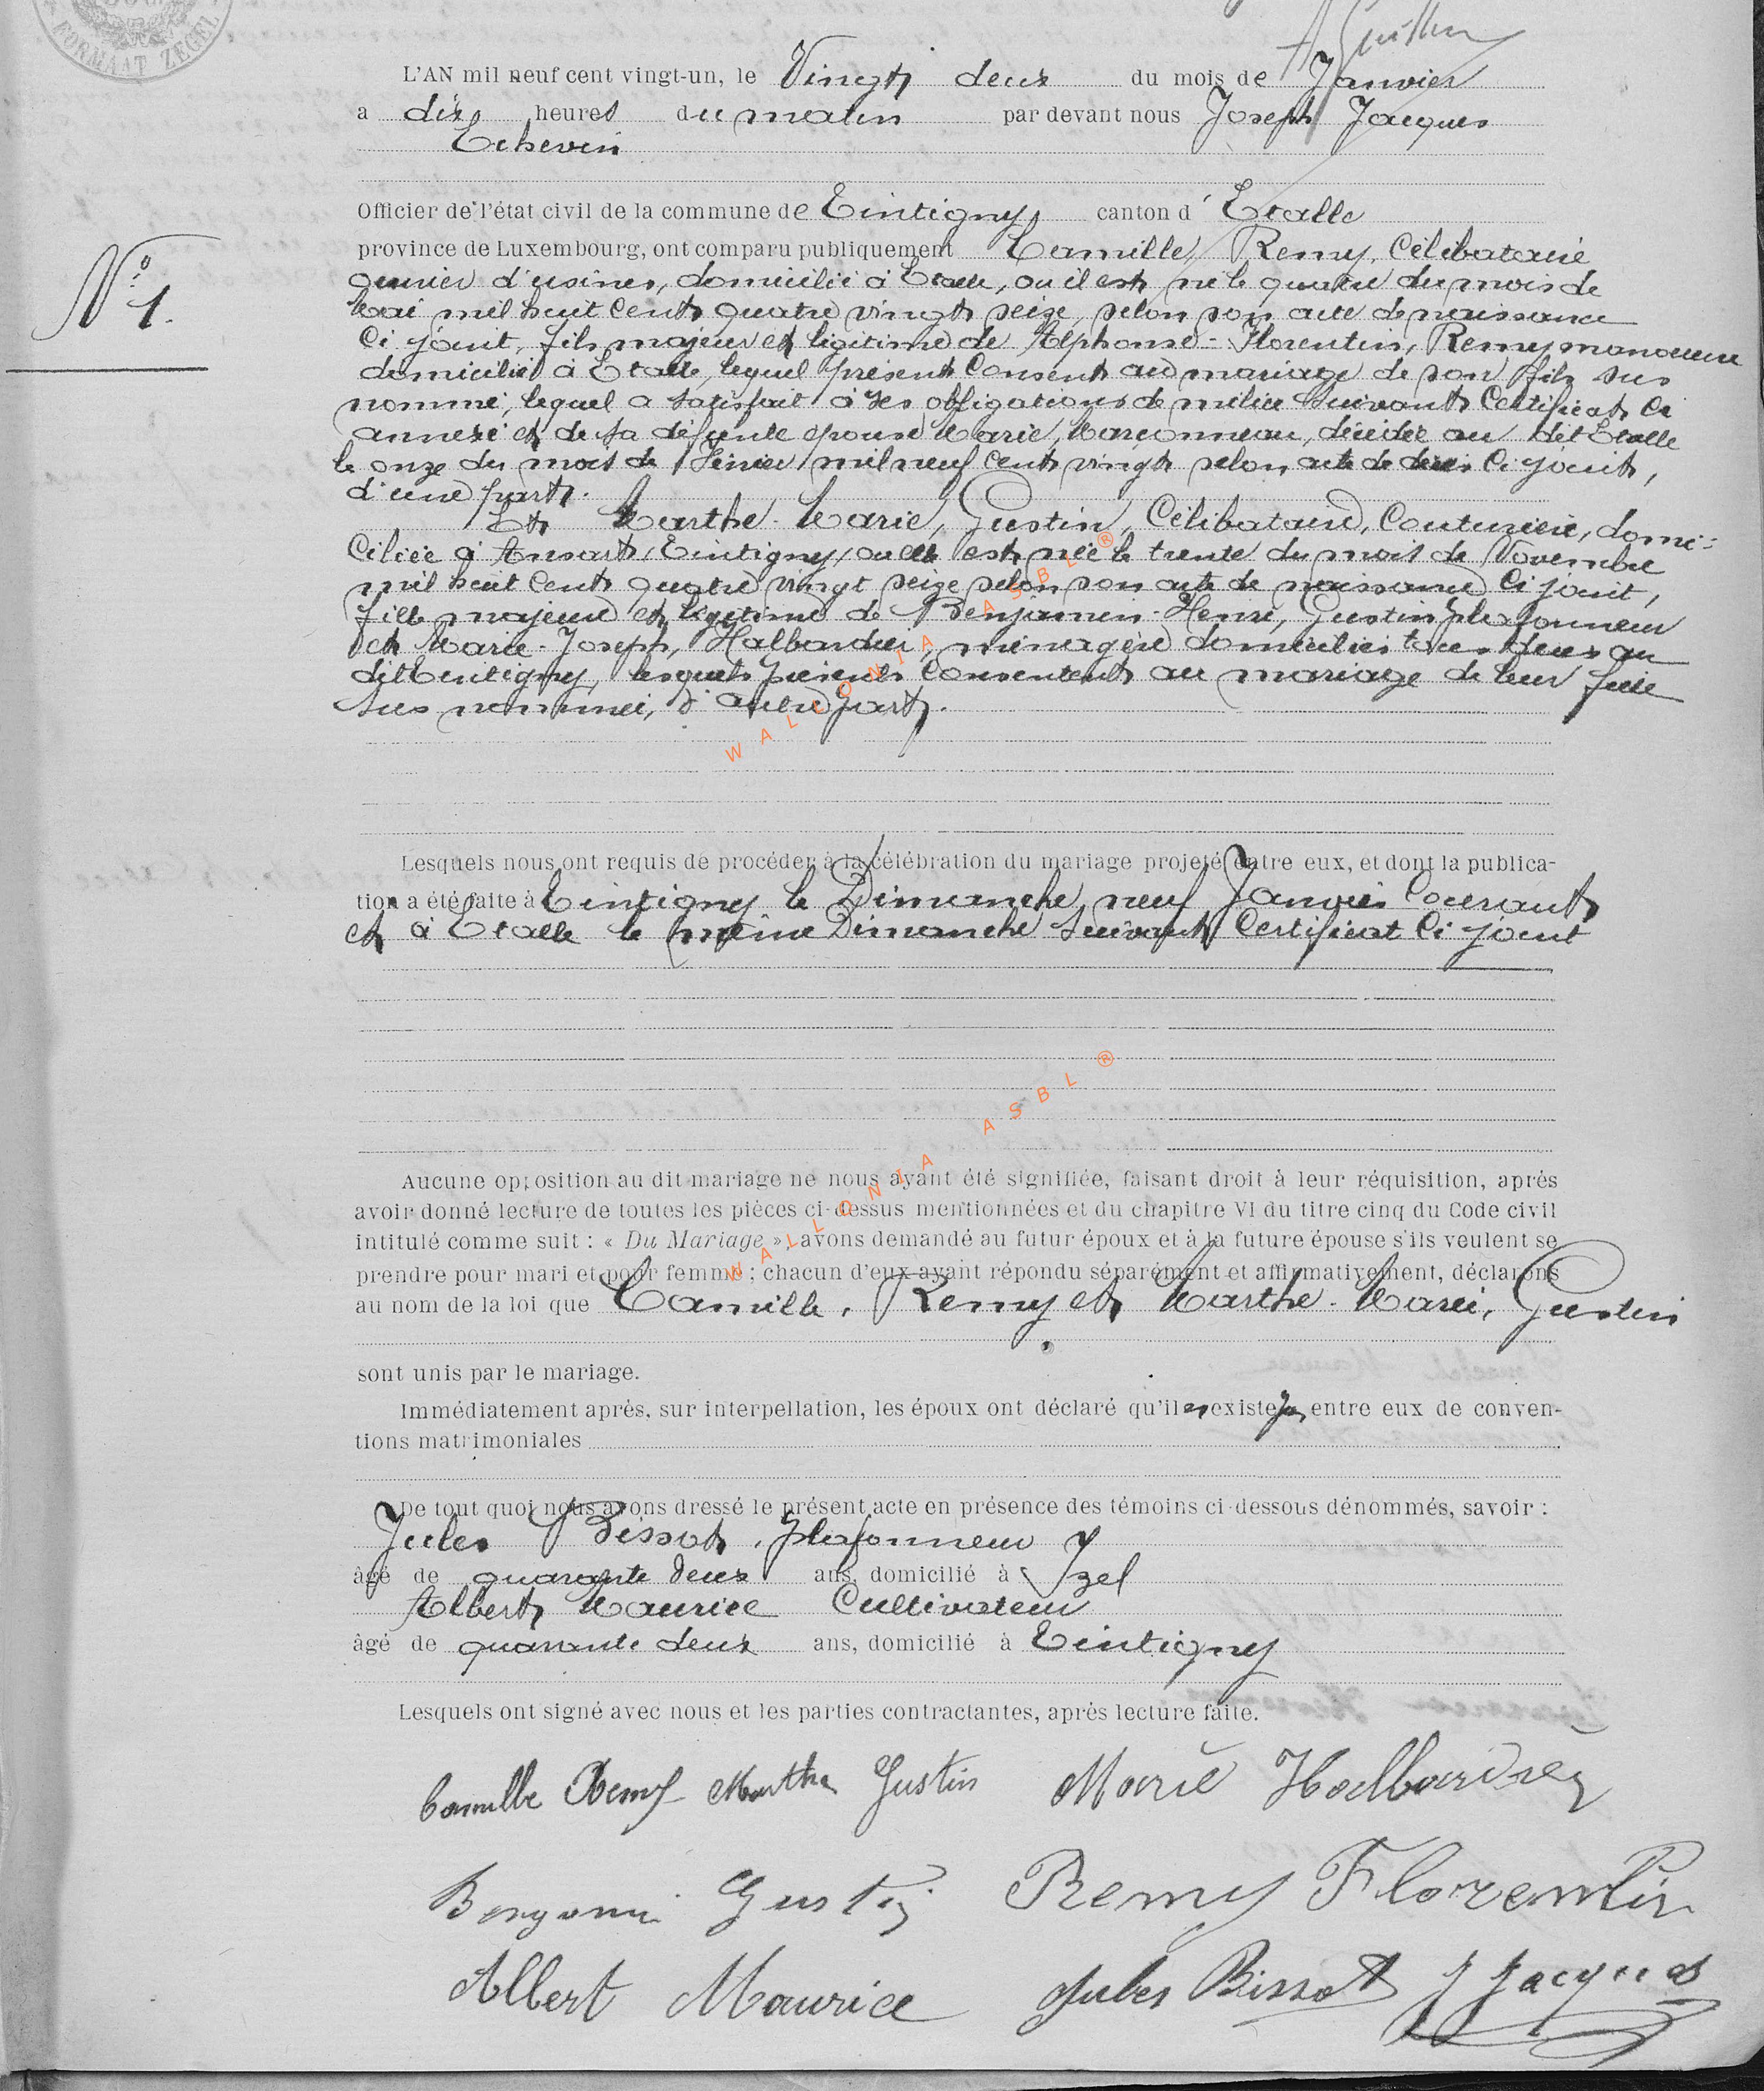 FORMAAT ZEGEL
L'AN mil neuf cent vingt-un, le Vingt deux du mois de Janvier
a dix heures du matin par devant nous Joseph Jacques
Echevin
Officier de l'état civil de la commune de Tintigny canton d' Etalle
N° 1.
province de Luxembourg, ont comparu publiquement Camille, Remy, Célibataire
ouvrier d'usines, domicilié à Etalle, ou il est né le quatre du mois de
Mai mil huit cent quatre vingt seize, selon son acte de naissance
Ci joint, fils majeur et légitime de Alphonse-Florentin, Remy manoeuvre
domicilié à Etalle, lequel présent Consent au mariage de son fils sus
nommé, lequel a satisfait à ses obligations de milice suivant Certificat Ci
annexé et de sa défunte épouse Marie, Marconneau, décédée au dit Etalle
le onze du mois de Février mil neuf cent vingt selon acte de décès Ci joint,
d'une part.
Et Marthe-Marie, Gustin, Célibataire, Couturière, domi-
ciliée à Ansart, Tintigny, ou elle est née le trente du mois de Novembre
mil huit cent quatre vingt seize selon son acte de naissance Ci joint,
fille majeure et légitime de Benjamin-Henri, Gustin plafonneur
et Marie-Joseph, Halbardier, ménagère domiciliés tous deux au
dit Tintigny, lesquels présents Consentent au mariage de leur fille
sus nommée, d'autre part.
Lesquels nous ont requis de procéder à la célébration du mariage projeté entre eux, et dont la publica-
tion a été faite à Tintigny le Dimanche neuf Janvier Courant
et à Etalle le même Dimanche suivant Certificat Ci joint
Aucune opposition au dit mariage ne nous ayant été signifiée, faisant droit à leur réquisition, après
avoir donné lecture de toutes les pièces ci-dessus mentionnées et du chapitre VI du titre cinq du Code civil
intitulé comme suit : « Du Mariage », avons demandé au futur époux et à la future épouse s'ils veulent se
prendre pour mari et pour femme ; chacun d'eux ayant répondu séparément et affirmativement, déclarons
au nom de la loi que Camille, Remy et Marthe-Marie, Gustin
sont unis par le mariage.
Immédiatement après, sur interpellation, les époux ont déclaré qu'il n'existe pas entre eux de conven-
tions matrimoniales
De tout quoi nous avons dressé le présent acte en présence des témoins ci-dessous dénommés, savoir :
Jules Bissot, plafonneur
âgé de quarante deux ans, domicilié à Izel
Albert Maurice Cultivateur
âgé de quarante deux ans, domicilié à Tintigny
Lesquels ont signé avec nous et les parties contractantes, après lecture faite.
Camille Remy Marthe Gustin Marie Halbardier
Benjamin Gustin Remy Florentin
Albert Maurice Jules Bissot J Jacques
WALLONIA ASBL ®
WALLONIA ASBL ®